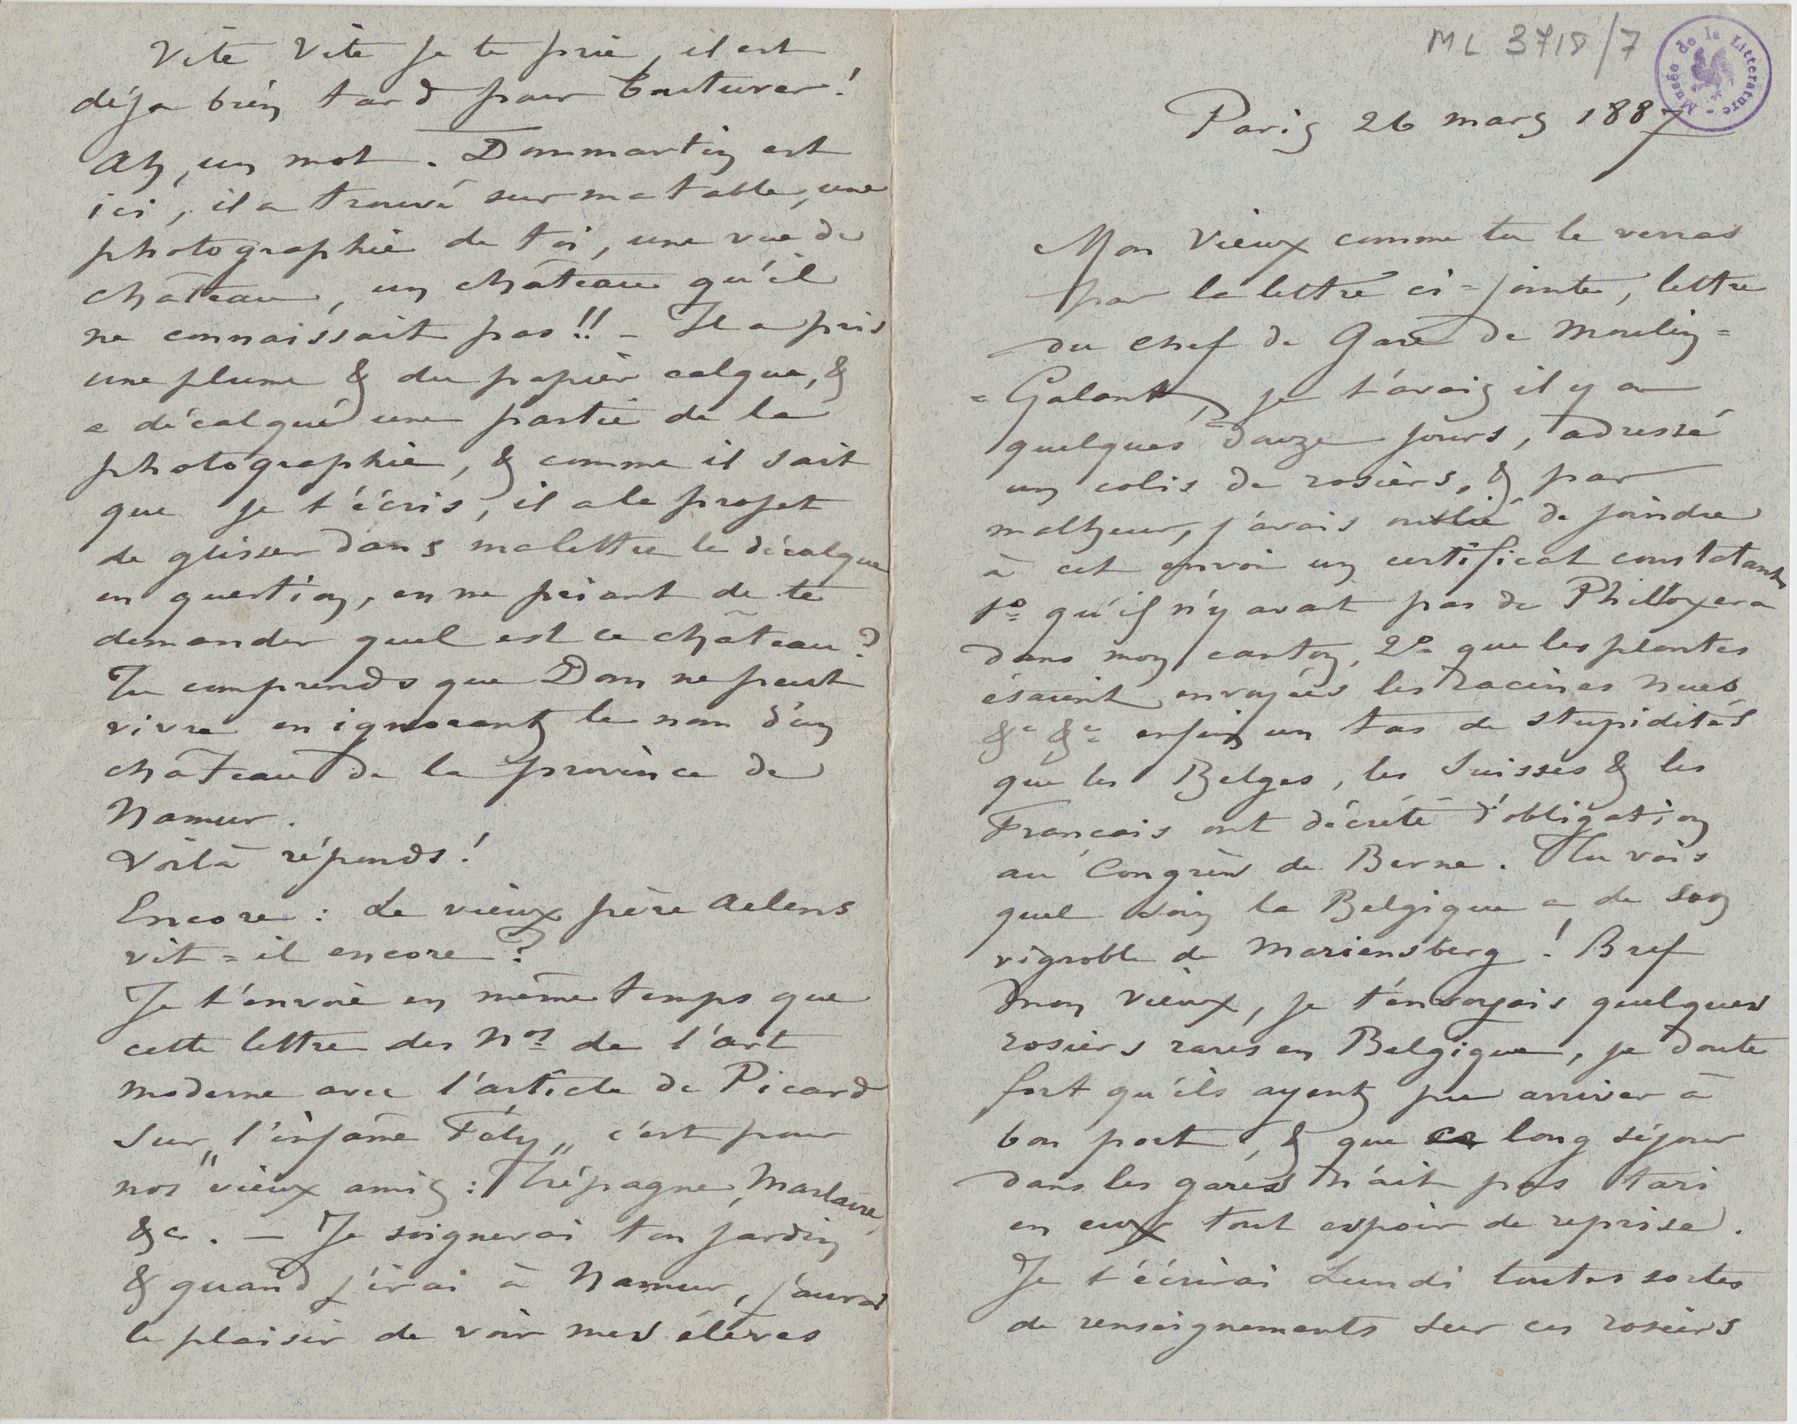 ML 3718/7
Musée de la Littérature
Paris 26 mars 1887
Mon Vieux comme tu le verras
par la lettre ci=jointe, lettre
du chef de Gare de Moulin=
=Galant, je t'avais il y a
quelques douze jours, adressé
un colis de rosiers, & par
malheur, j'avais oublié de joindre
à cet envoi un certificat constatant
1º qu'il n'y avait pas de Philloxera
dans mon canton, 2º que les plantes
étaient envoyées les racines nues
&c &c enfin un tas de stupidités
que les Belges, les Suisses & les
Français ont décrété d'obligation
au Congrès de Berne. Tu vois
quel soin la Belgique a de son
vignoble de Mariensberg ! Bref
mon vieux, je t'envoyais quelques
rosiers rares en Belgique, je doute
fort qu'ils ayent pu arriver à
bon port, & que ce long séjour
dans les gares n'ait pas tari
en eux tout espoir de reprise.
Je t'écrirai Lundi toutes sortes
de renseignements sur ces rosiers
Vite Vite je te prie, il est
déja bien tard pour bouturer !
Ah, un mot. Dommartin est
ici, il a trouvé sur ma table, une
photographie de toi, une vue de
château, un château qu'il
ne connaissait pas !! – Il a pris
une plume & du papier calque, &
a décalqué une partie de la
photographie, & comme il sait
que je t'écris, il a le projet
de glisser dans ma lettre le décalque
en question, en me priant de te
demander quel est ce château ?
Tu comprends que Dom ne peut
vivre en ignorant le nom d'un
château de la province de
Namur.
Voilà réponds !
Encore : Le vieux père Aelens
vit=il encore ?
Je t'envoie en même temps que
cette lettre des Nos de l'art
moderne avec l'article de Picard
sur „l'infâme Fély„ c'est pour
nos vieux amis : Trépagne, Marlaire,
&c. — Je soignerai ton jardin
& quand j'irai à Namur, j'aurai
le plaisir de voir mes élèves